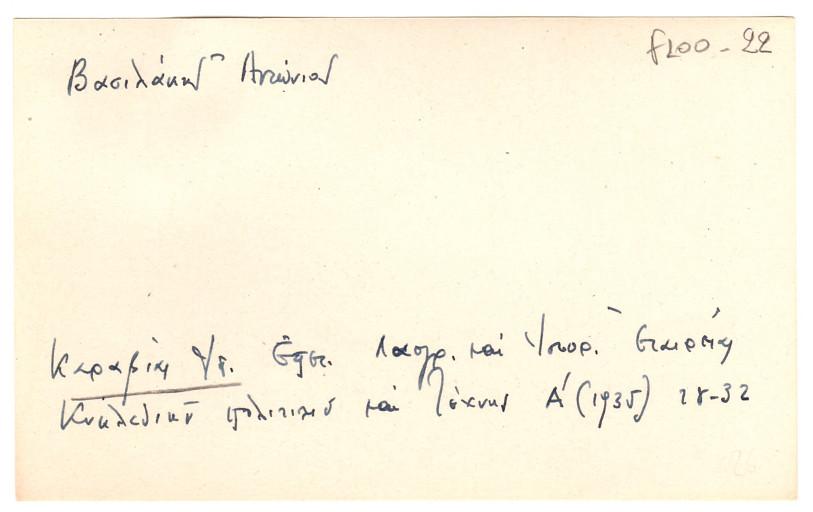 f100-22
Βασιλάκης Αντώνιος
Καραβία Ἐπετ. Λαογρ. καὶ Ἱστορ. Ἑταιρείας
Κυκλαδικοῦ πολιτισμοῦ καὶ Τέχνης Α' (1935) 28-32